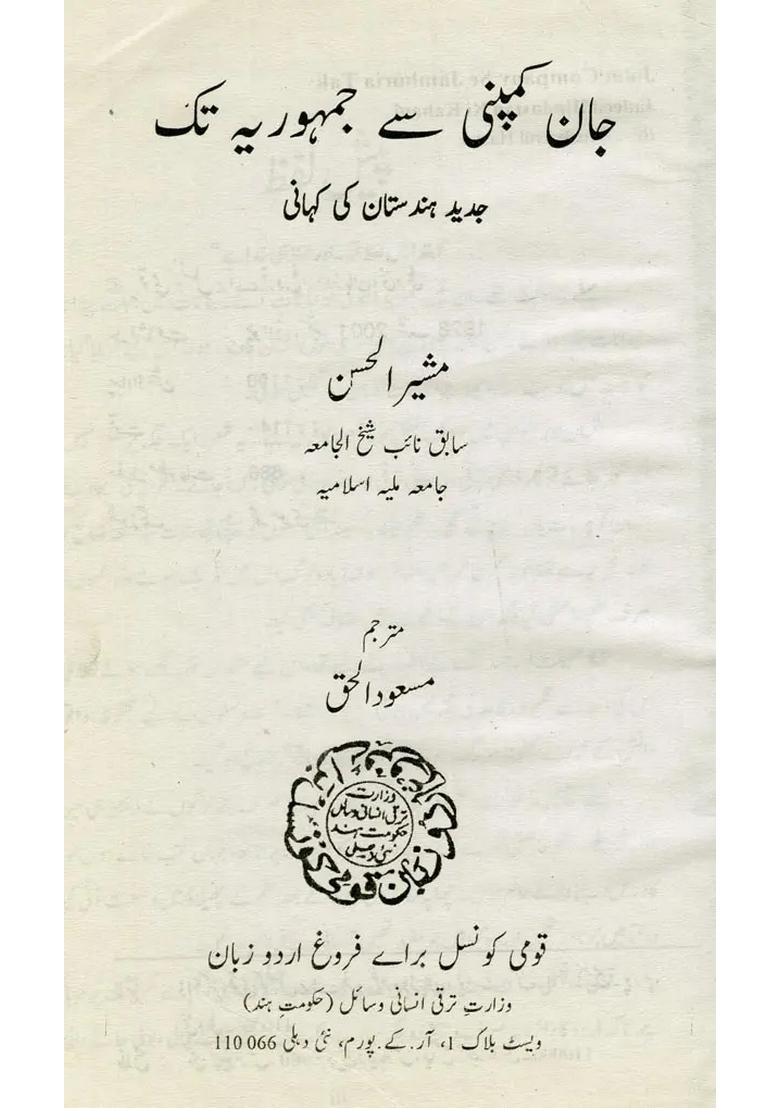 جان کمپنی سے جمہوریہ تک
جدید ہندستان کی کہانی
مشیر الحسن
سابق نائب شیخ الجامعہ
جامعہ ملیہ اسلامیہ
مترجم
مسعود الحق
وزارت
ترقی انسانی وسائل
حکومت ہند
نئی دہلی
قومی کونسل براے فروغ اردو زبان
وزارتِ ترقی انسانی وسائل (حکومتِ ہند)
ویسٹ بلاک 1، آر. کے. پورم، نئی دہلی 066 110